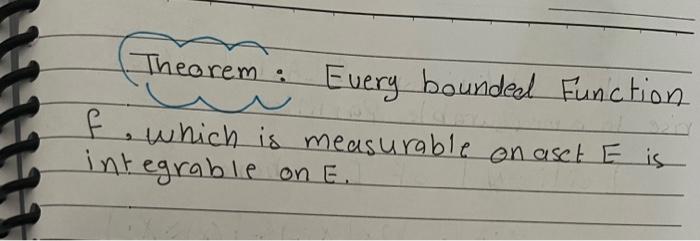 Theorem : Every bounded Function
f, which is measurable on aset E is
integrable on E.